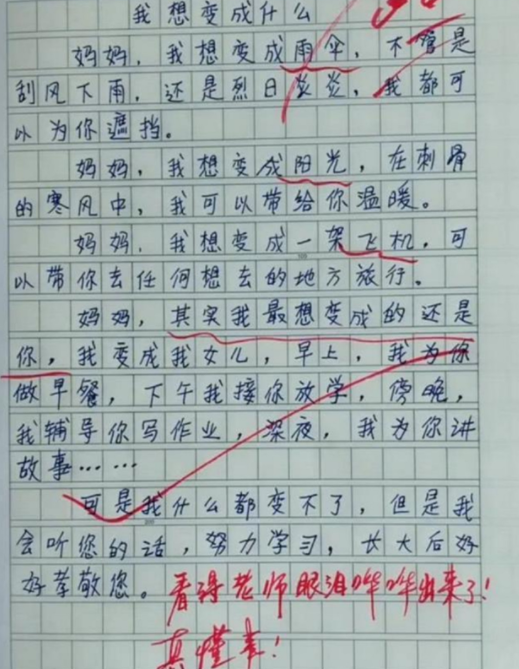 我想变成什么
妈妈，我想变成雨伞，不管是
刮风下雨，还是烈日炎炎，我都可
以为你遮挡。
妈妈，我想变成阳光，在刺骨
的寒风中，我可以带给你温暖。
妈妈，我想变成一架飞机，可
以带你去任何想去的地方旅行。
妈妈，其实我最想变成的还是
你，我变成我女儿，早上，我为你
做早餐，下午我接你放学，傍晚，
我辅导你写作业，深夜，我为你讲
故事……
可是我什么都变不了，但是我
会听您的话，努力学习，长大后好
好孝敬您。看得老师眼泪哗哗出来了！
真懂事！